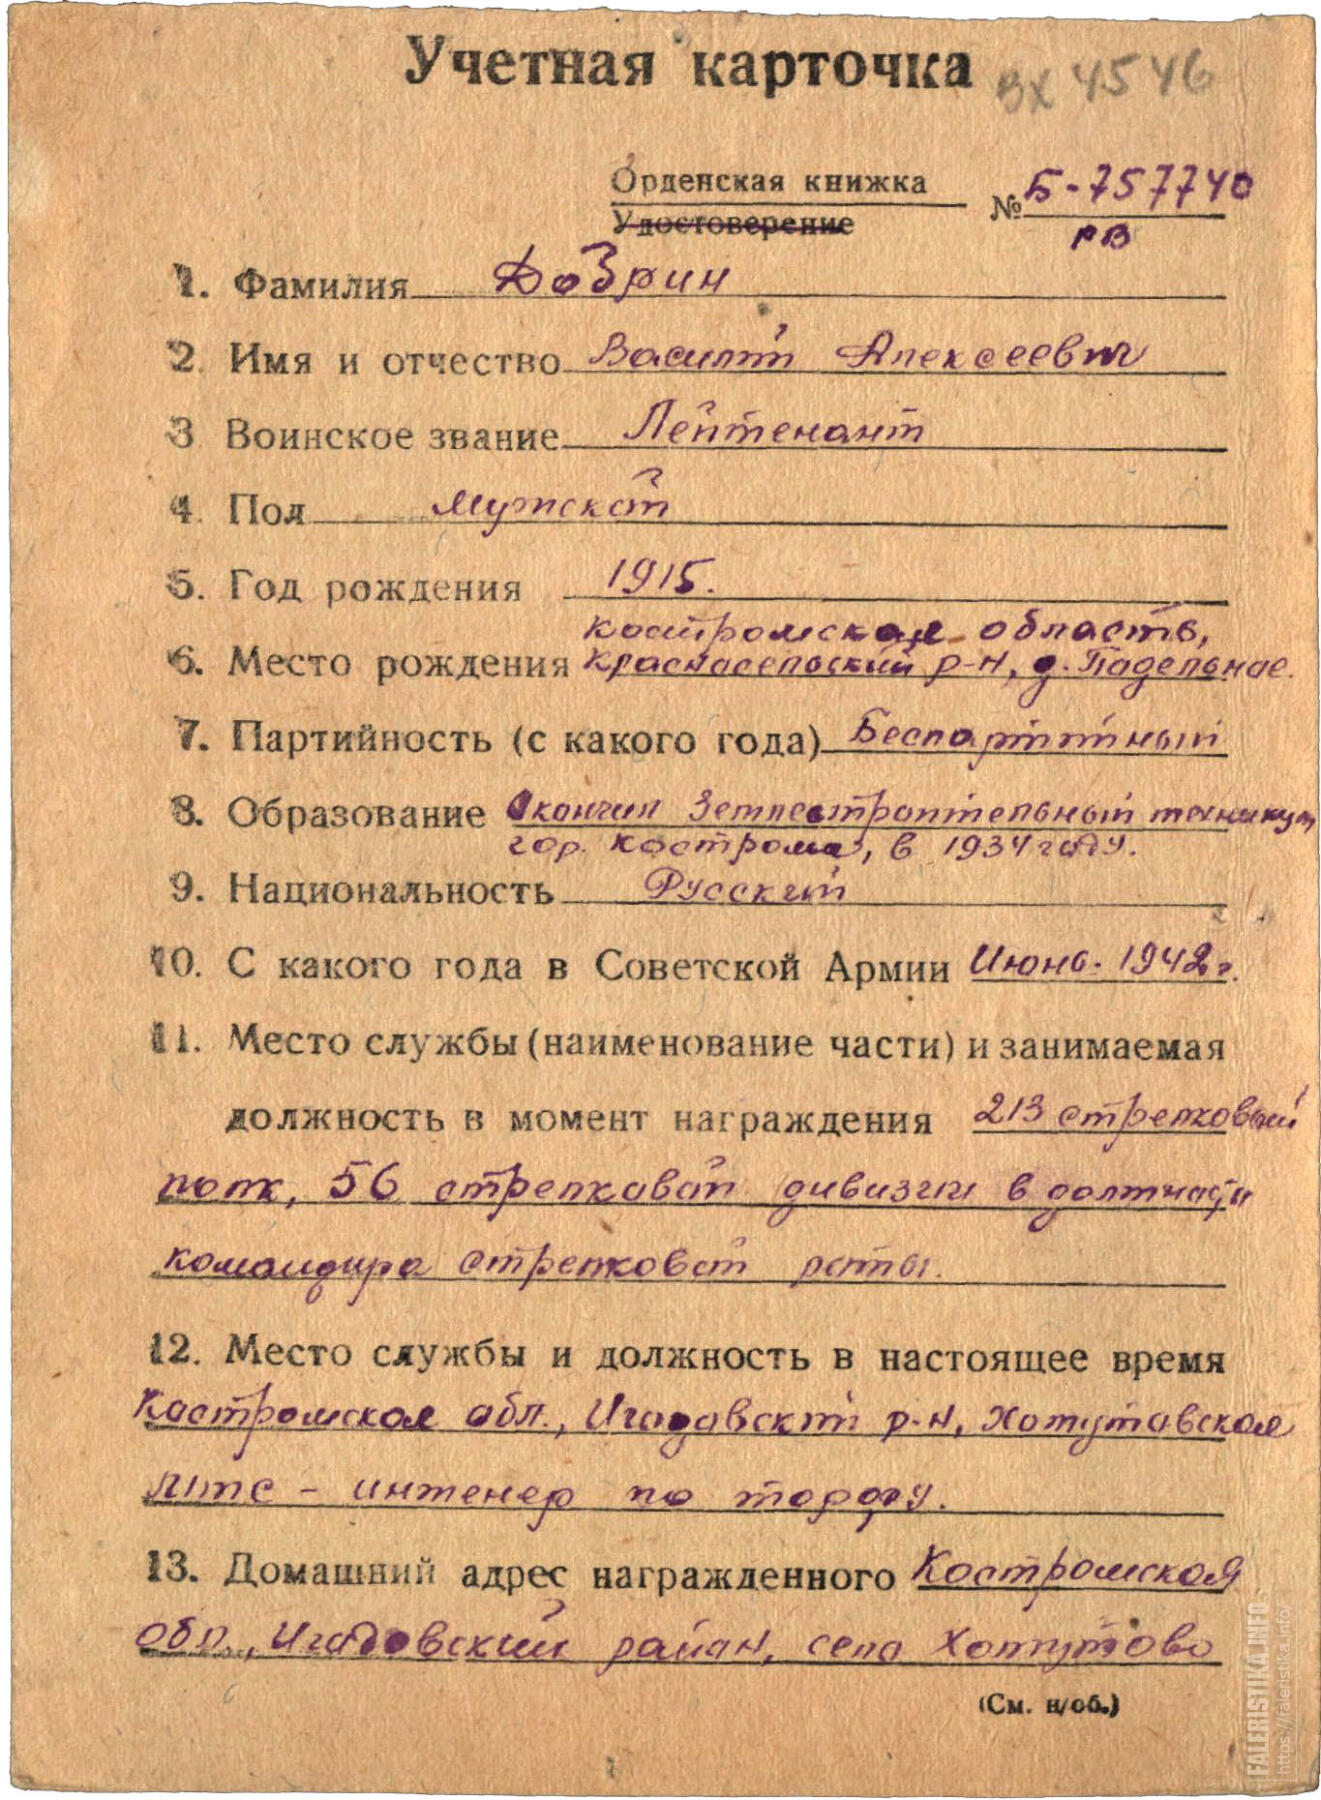 Учетная карточка вх 4546
Орденская книжка
Удостоверение
№ Б-757740
РВ
1. Фамилия Добрин
2. Имя и отчество Василий Алексеевич
3 Воинское звание Лейтенант
4. Пол Мужской
5. Год рождения 1915.
Костромская область,
6. Место рождения Красносельский р-н, д. Падельное.
7. Партийность (с какого года) Беспартийный
8. Образование Окончил Землестроительный техникум
гор. Кострома, в 1934 году.
9. Национальность Русский
10. С какого года в Советской Армии Июнь-1942г.
11. Место службы (наименование части) и занимаемая
должность в момент награждения 213 стрелковый
полк, 56 стрелковой дивизии в должности
командира стрелковой роты.
12. Место службы и должность в настоящее время
Костромская обл., Игодовский р-н, Хомутовская
МТС - инженер по торфу.
13. Домашний адрес награжденного Костромская
обл., Игодовский район, село Хомутово
(См. н/об.)
FALERISTIKA.INFO
https://faleristika.info/